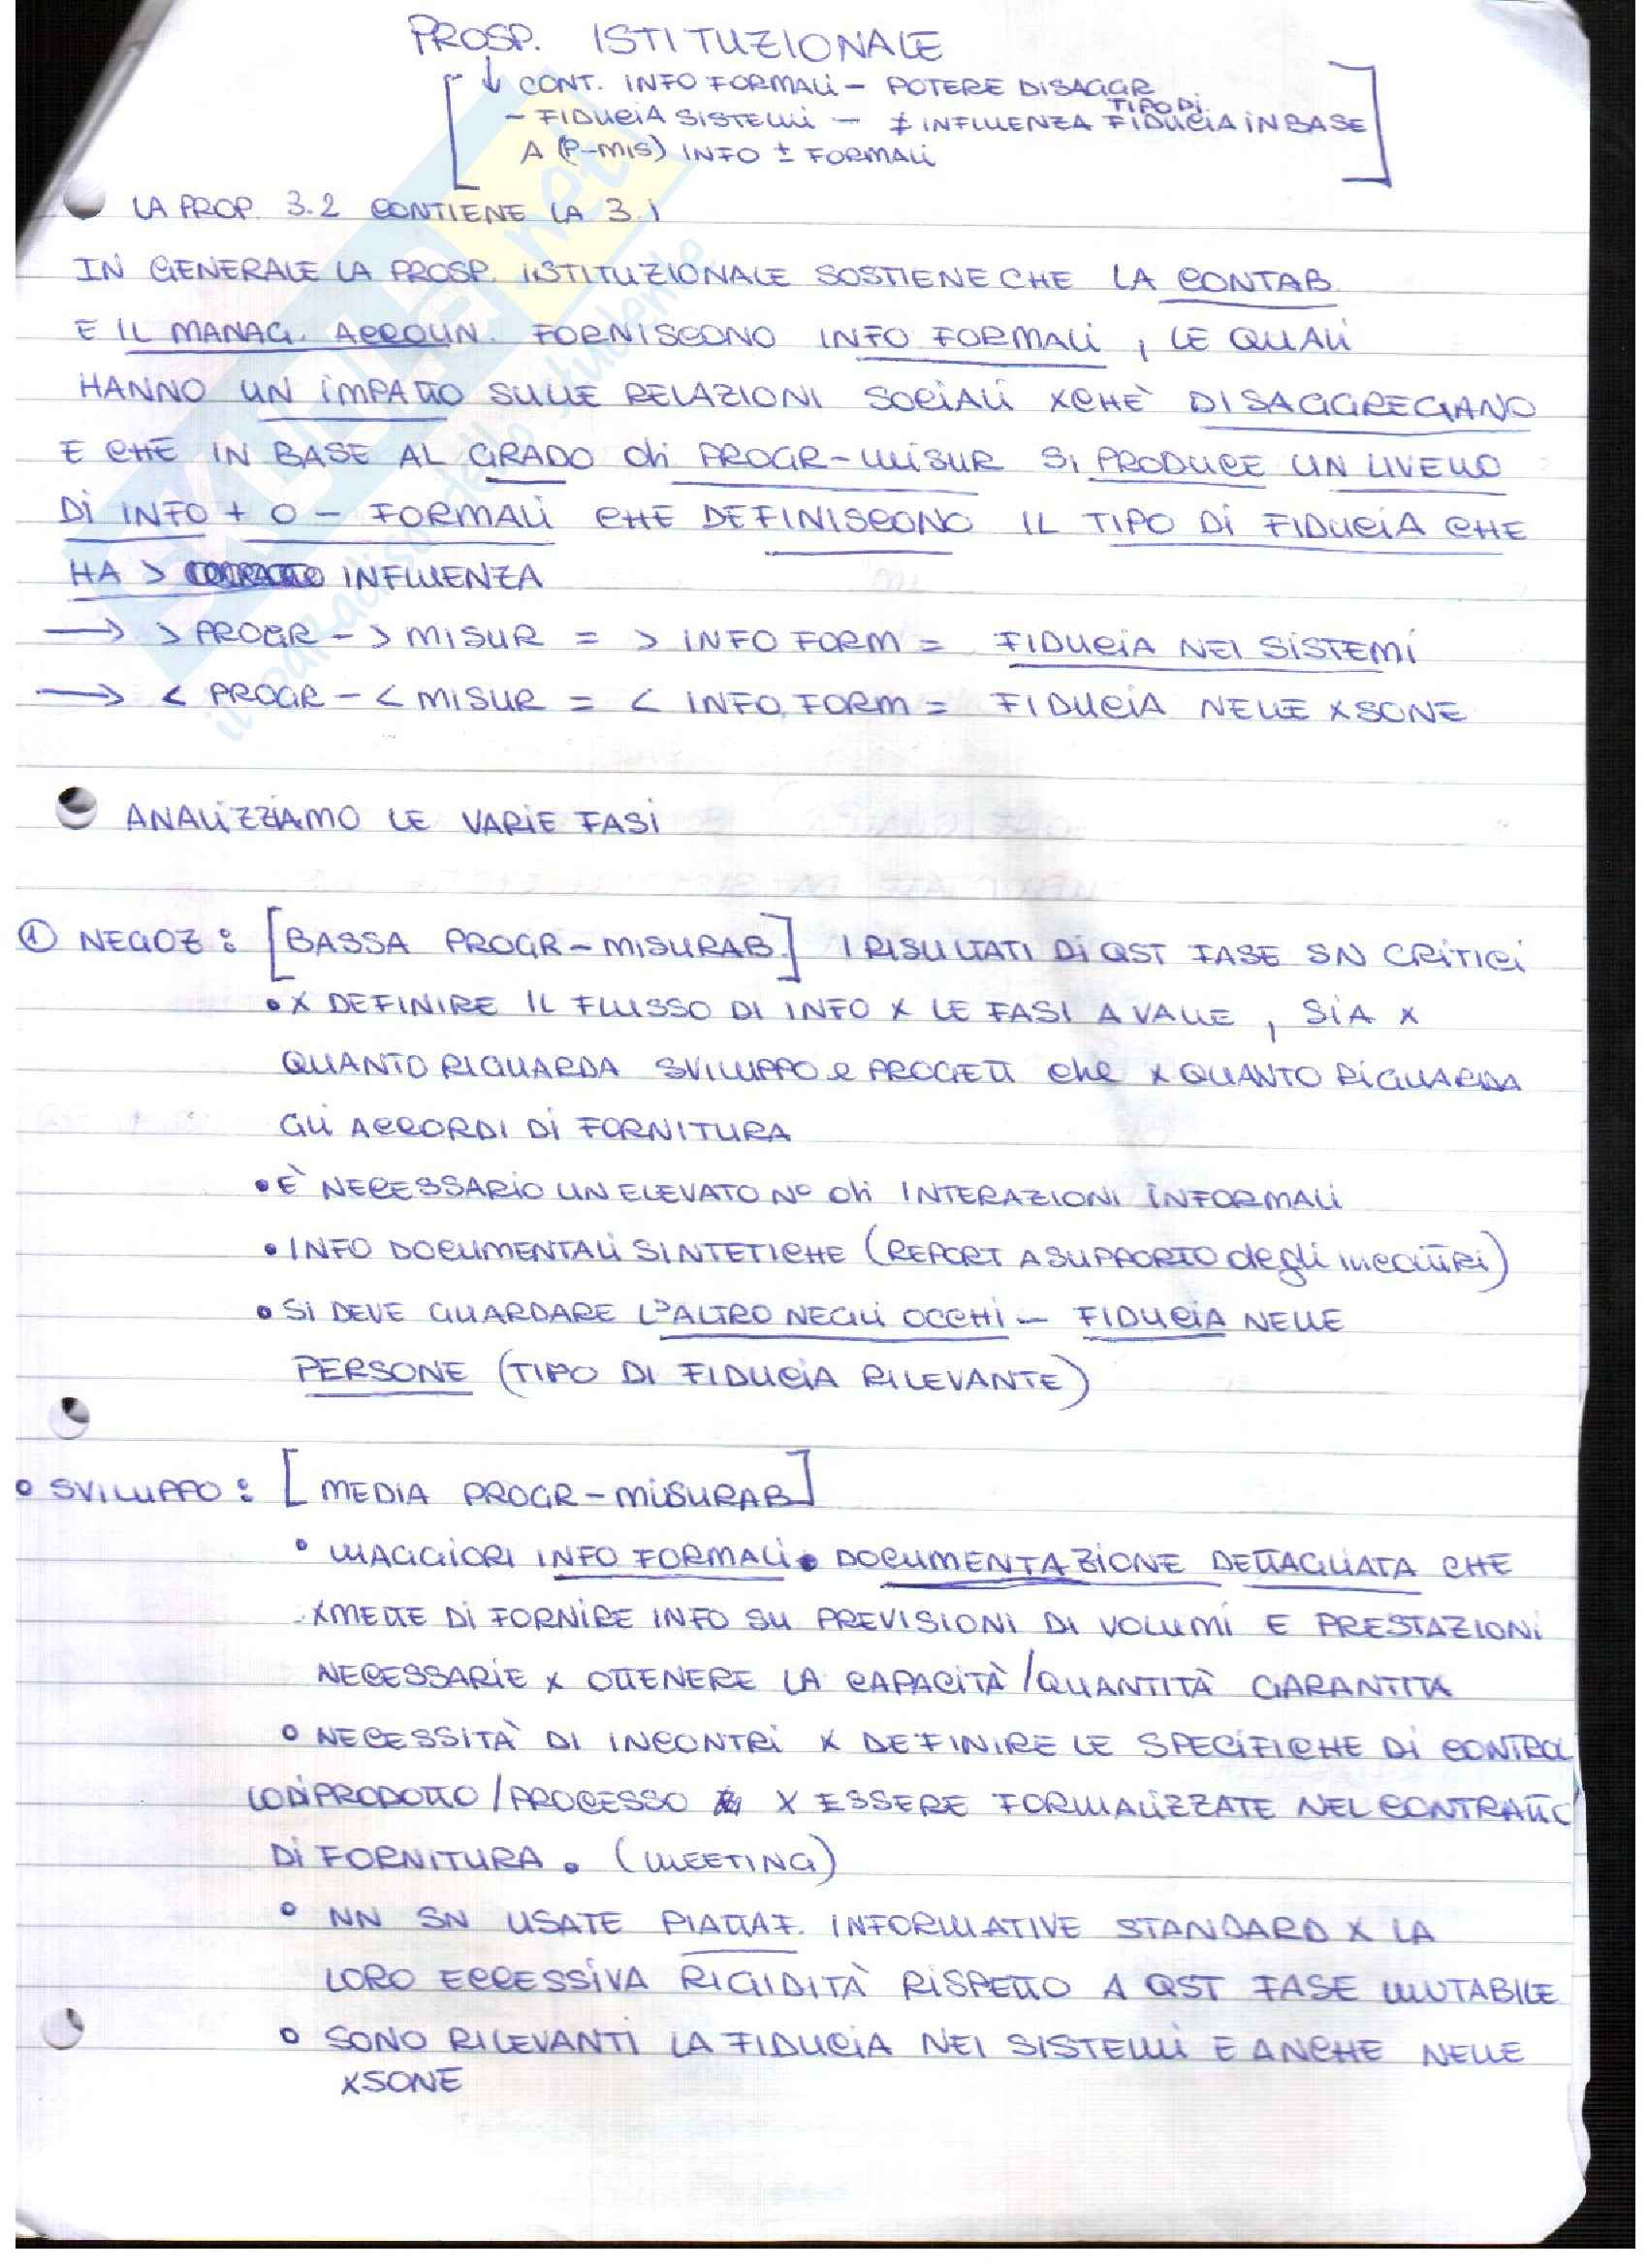 PROSP. ISTITUZIONALE
↓ CONT. INFO FORMALI – POTERE DISAGGR
– FIDUCIA SISTEMI – ≠ INFLUENZA TIPO DI FIDUCIA IN BASE
A (P-MIS) INFO ± FORMALI
LA PROP. 3.2 CONTIENE LA 3.1
IN GENERALE LA PROSP. ISTITUZIONALE SOSTIENE CHE LA CONTAB
E IL MANAG. ACCOUN. FORNISCONO INFO FORMALI, LE QUALI
HANNO UN IMPATTO SULLE RELAZIONI SOCIALI XCHÈ DISAGGREGANO
E CHE IN BASE AL GRADO di PROGR-MISUR SI PRODUCE UN LIVELLO
DI INFO + O – FORMALI CHE DEFINISCONO IL TIPO DI FIDUCIA CHE
HA > INFLUENZA
→ > PROGR – > MISUR = > INFO FORM = FIDUCIA NEI SISTEMI
→ < PROGR – < MISUR = < INFO. FORM = FIDUCIA NELLE XSONE
ANALIZZIAMO LE VARIE FASI
① NEGOZ: [BASSA PROGR-MISURAB.] I RISULTATI DI QST FASE SN CRITICI
• X DEFINIRE IL FLUSSO DI INFO X LE FASI A VALLE, SIA X
QUANTO RIGUARDA SVILUPPO e PROGETTI che X QUANTO RIGUARDA
GLI ACCORDI DI FORNITURA
• È NECESSARIO UN ELEVATO N° di INTERAZIONI INFORMALI
• INFO DOCUMENTALI SINTETICHE (REPORT A SUPPORTO degli incontri)
• SI DEVE GUARDARE L'ALTRO NEGLI OCCHI – FIDUCIA NELLE
PERSONE (TIPO DI FIDUCIA RILEVANTE)
• SVILUPPO: [MEDIA PROGR-MISURAB]
• MAGGIORI INFO FORMALI • DOCUMENTAZIONE DETTAGLIATA CHE
XMETTE DI FORNIRE INFO SU PREVISIONI DI VOLUMI E PRESTAZIONI
NECESSARIE X OTTENERE LA CAPACITÀ/QUANTITÀ GARANTITA
• NECESSITÀ DI INCONTRI X DEFINIRE LE SPECIFICHE DI CONTROL
LO DI PRODOTTO/PROCESSO X ESSERE FORMALIZZATE NEL CONTRATTO
DI FORNITURA. (MEETING)
• NN SN USATE PIATTAF. INFORMATIVE STANDARD X LA
LORO ECCESSIVA RIGIDITÀ RISPETTO A QST FASE MUTABILE
• SONO RILEVANTI LA FIDUCIA NEI SISTEMI E ANCHE NELLE
XSONE
SKUOLA.net
il paradiso dello studente